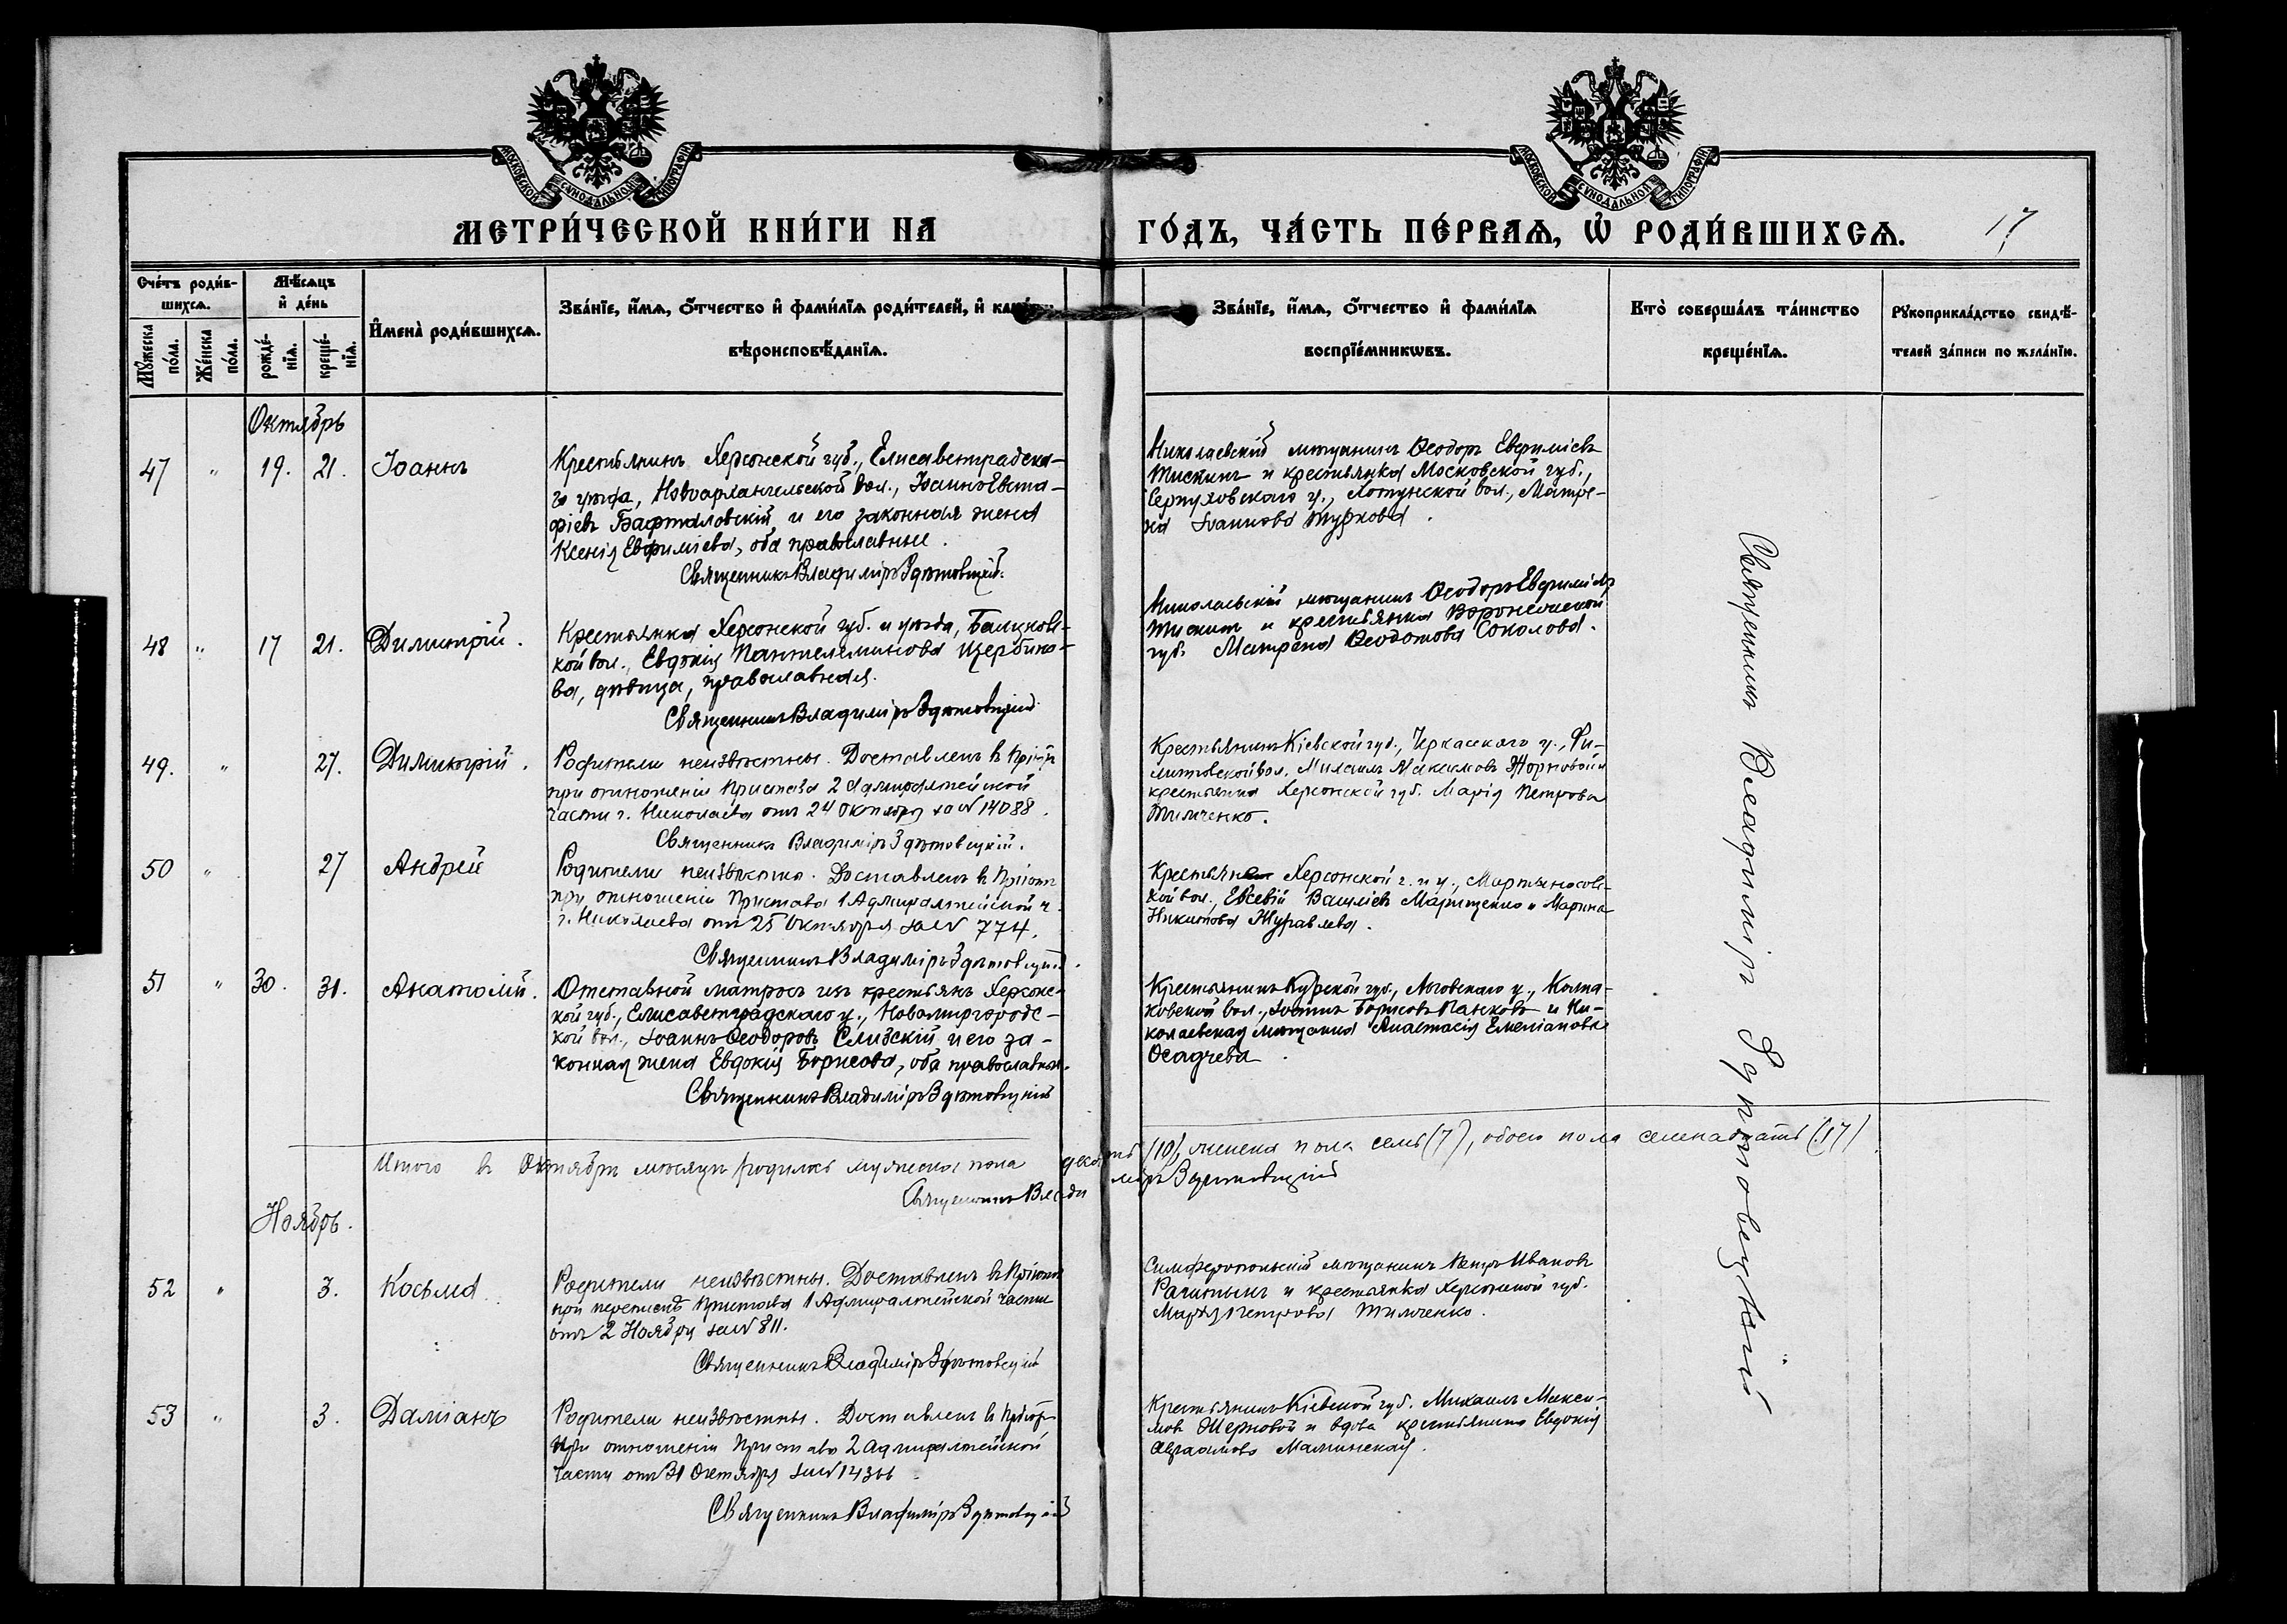 МОСКОВСКОЙ СѴНОДАЛЬНОЙ ТИПОГРАФІИ
МОСКОВСКОЙ СѴНОДАЛЬНОЙ ТИПОГРАФІИ
МЕТРИ́ЧЕСКОЙ КНИ́ГИ НА ГО́ДЪ, ЧА́СТЬ ПЕ́РВАѦ, Ѡ РОДИ́ВШИХСѦ.
17
Сче́тъ роди́в-
шихсѧ.
Мꙋ́жеска по́ла.
Же́нска по́ла.
Мѣ́сѧцъ
и҆ де́нь
рожде́-
нїѧ.
креще́-
нїѧ.
И҆мена̀ роди́вшихсѧ.
Зва́нїе, и҆́мѧ, ѻ҆́тчество и҆ фами́лїѧ роди́телей, и҆
вѣроисповѣ́данїѧ.
Зва́нїе, и҆́мѧ, ѻ҆́тчество и҆ фами́лїѧ
воспрїе́мникѡвъ.
Кто̀ соверша́лъ та́инство
креще́нїѧ.
Рꙋкоприкла́дство свидѣ́-
телей за́писи по жела́нїю.
Октябрь
47 " 19. 21. Іоаннъ
Крестьянинъ Херсонской губ., Елисаветградска-
го уѣзда, Новоархангельской вол., Іоаннъ Евста-
фіевъ и его законная жена
Ксенія Евфиміева, оба православные.
Священникъ Владиміръ Здѣтовецкій.
Николаевскій мѣщанинъ Ѳеодоръ Евфиміевъ
Тискинъ и крестьянка Московской губ.,
Серпуховскаго у., Хотунской вол., Матре-
на Іоаннова Туркова.
48 " 17 21. Димитрій.
Крестьянка Херсонской губ. и уѣзда, Балацковс-
кой вол., Евдокія Пантелеимонова Щербако-
ва, дѣвица, православная.
Священникъ Владиміръ Здѣтовецкій
Николаевскій мѣщанинъ Ѳеодоръ Евфиміевъ
Тискинъ и крестьянка Воронежской
губ. Матрена Ѳеодотова Соколова.
49. " 27. Димитрій.
Родители неизвѣстны. Доставленъ въ Пріютъ
при отношеніи Пристава 2 Адмиралтейской
части г. Николаева отъ 24 Октября за № 14088.
Священникъ Владиміръ Здѣтовецкій.
Крестьянинъ Кіевской губ., Черкасскаго у.,
вол. Михаилъ Максимовъ Жерновой и
крестьянка Херсонской губ. Марія Петрова
Тимченко.
50 " 27 Андрей
Родители неизвѣстны. Доставленъ въ Пріютъ
при отношеніи Пристава 1 Адмиралтейской ч.
г. Николаева отъ 25 Октября за № 774.
Священникъ Владиміръ Здѣтовецкій.
Херсонской г. и у., Мартыновс-
кой вол., Евсевій Василіевъ Марищенко и Марина
Никитова Журавлева.
51 " 30. 31. Анатолій.
Отставной матросъ изъ крестьянъ Херсонс-
кой губ., Елисаветградскаго у., Новомиргородс-
кой вол., Іоаннъ Ѳеодоровъ Слизскій и его за-
конная жена Евдокія Борисова, оба православные.
Священникъ Владиміръ Здѣтовецкій
Крестьянинъ Курской губ., Льговскаго у., Колпа-
ковской вол., Іоаннъ Борисовъ Панковъ и Ни-
колаевская мѣщанка Анастасія Емеліанова
Осадчева.
Итого въ Октябрѣ мѣсяцѣ родилось мужеска пола десять (10), женска пола семь (7), обоего пола семнадцать (17)
Священникъ Владиміръ Здѣтовецкій
Ноябрь.
52 " 3. Косьма
Родители неизвѣстны. Доставленъ въ Пріютъ
при перепискѣ Пристава 1 Адмиралтейской части
отъ 2 Ноября за № 811.
Священникъ Владиміръ Здѣтовецкій
Симферопольскій мѣщанинъ Петръ Ивановъ
и крестьянка Херсонской губ.
Марія Петрова Тимченко.
53 " 3. Даміанъ
Родители неизвѣстны. Доставленъ въ Пріютъ
При отношеніи Пристава 2 Адмиралтейской
части отъ 31 Октября за № 14366.
Священникъ Владиміръ Здѣтовецкій
Крестьянинъ Кіевской губ. Михаилъ Макси-
мовъ Жерновой и вдова крестьянина Евдокія
Аврамова Малинская.
Священникъ Владиміръ Здѣтовецкій